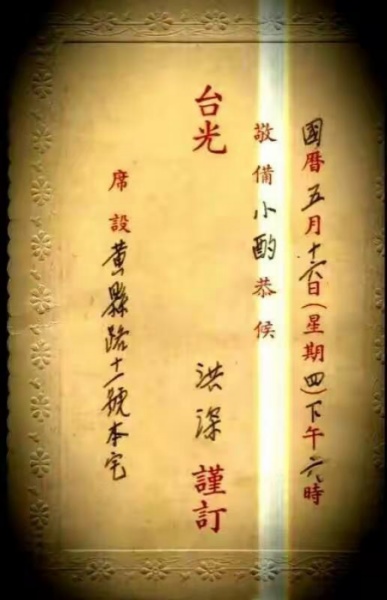 國曆五月十六日(星期四)下午六時
敬備小酌恭候
台光
洪深 謹訂
席設黃縣路十一號本宅